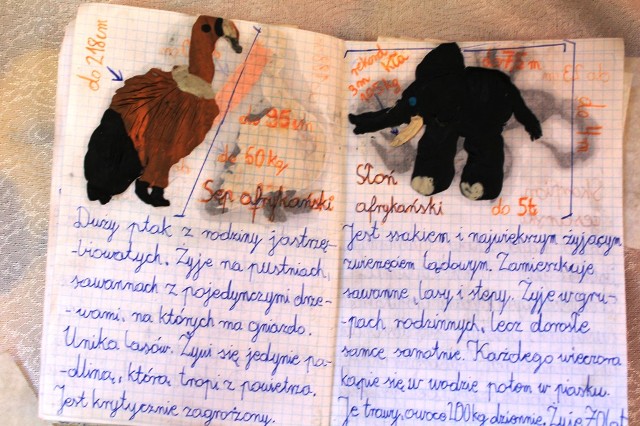 do 218cm
do 95cm
do 60kg
Sęp afrykański
Duży ptak z rodziny jastrzę-
-biowatych. Żyje na pustniach,
sawannach z pojedynczymi drze-
-wami, na których ma gniazdo.
Unika lasów. Żywi się jedynie pa-
-dliną, którą tropi z powietrza.
Jest krytycznie zagrożony.
rekord
kła
3m
do 7,5m
do 4m
Słoń
afrykański
do 5t
Jest ssakiem i największym żyjącym
zwierzęciem lądowym. Zamieszkuje
sawanne, lasy i stepy. Żyje w gru-
-pach rodzinnych, lecz dorosłe
samce samotnie. Każdego wieczora
kąpie się w wodzie potem w piasku.
Je trawy, owoce 200kg dziennie. Żyje 70 lat